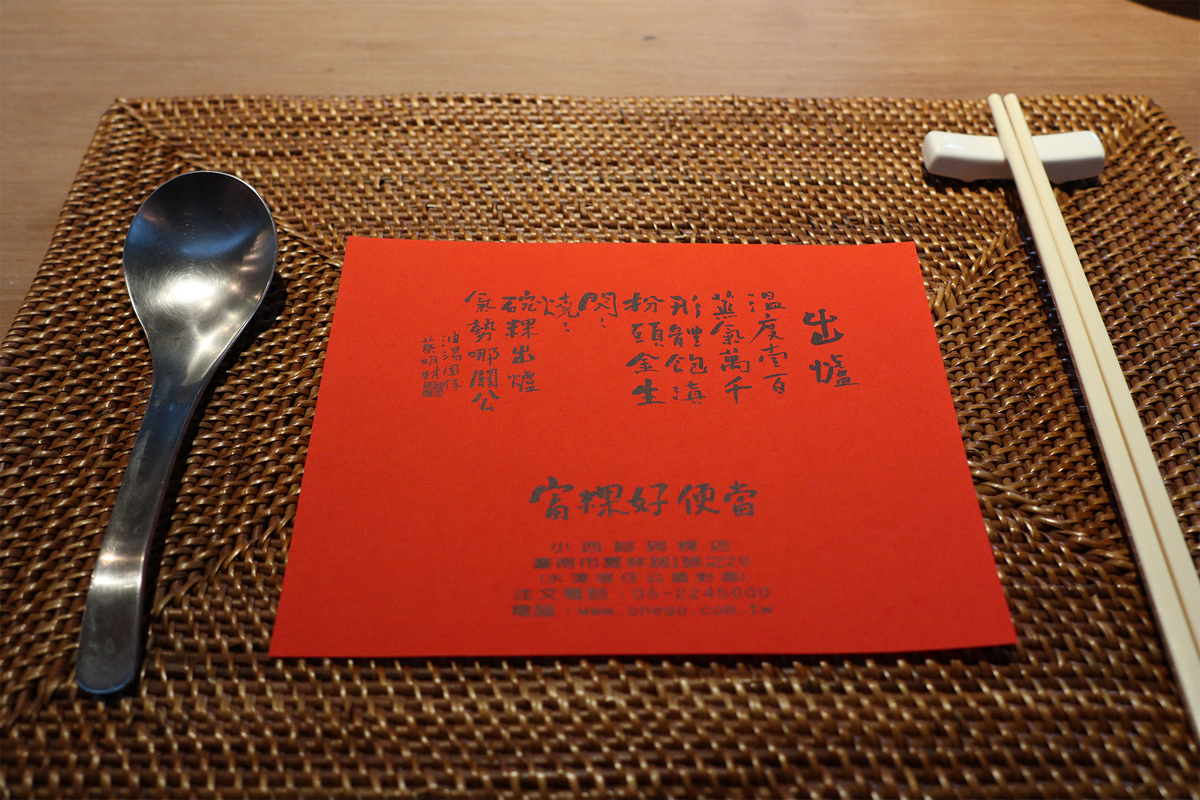 出爐
溫度壹百
蒸氣萬千
形體飽滇
粉頭金生
閃：
燒：
碗粿出爐
氣勢哪關公
油湯囝仔
蔡明財
富粿好便當
小西腳碗粿店
臺南市夏林路1號之29
(水萍塭仔公園對面)
注文電話：06-2245000
電話：www.onego.com.tw